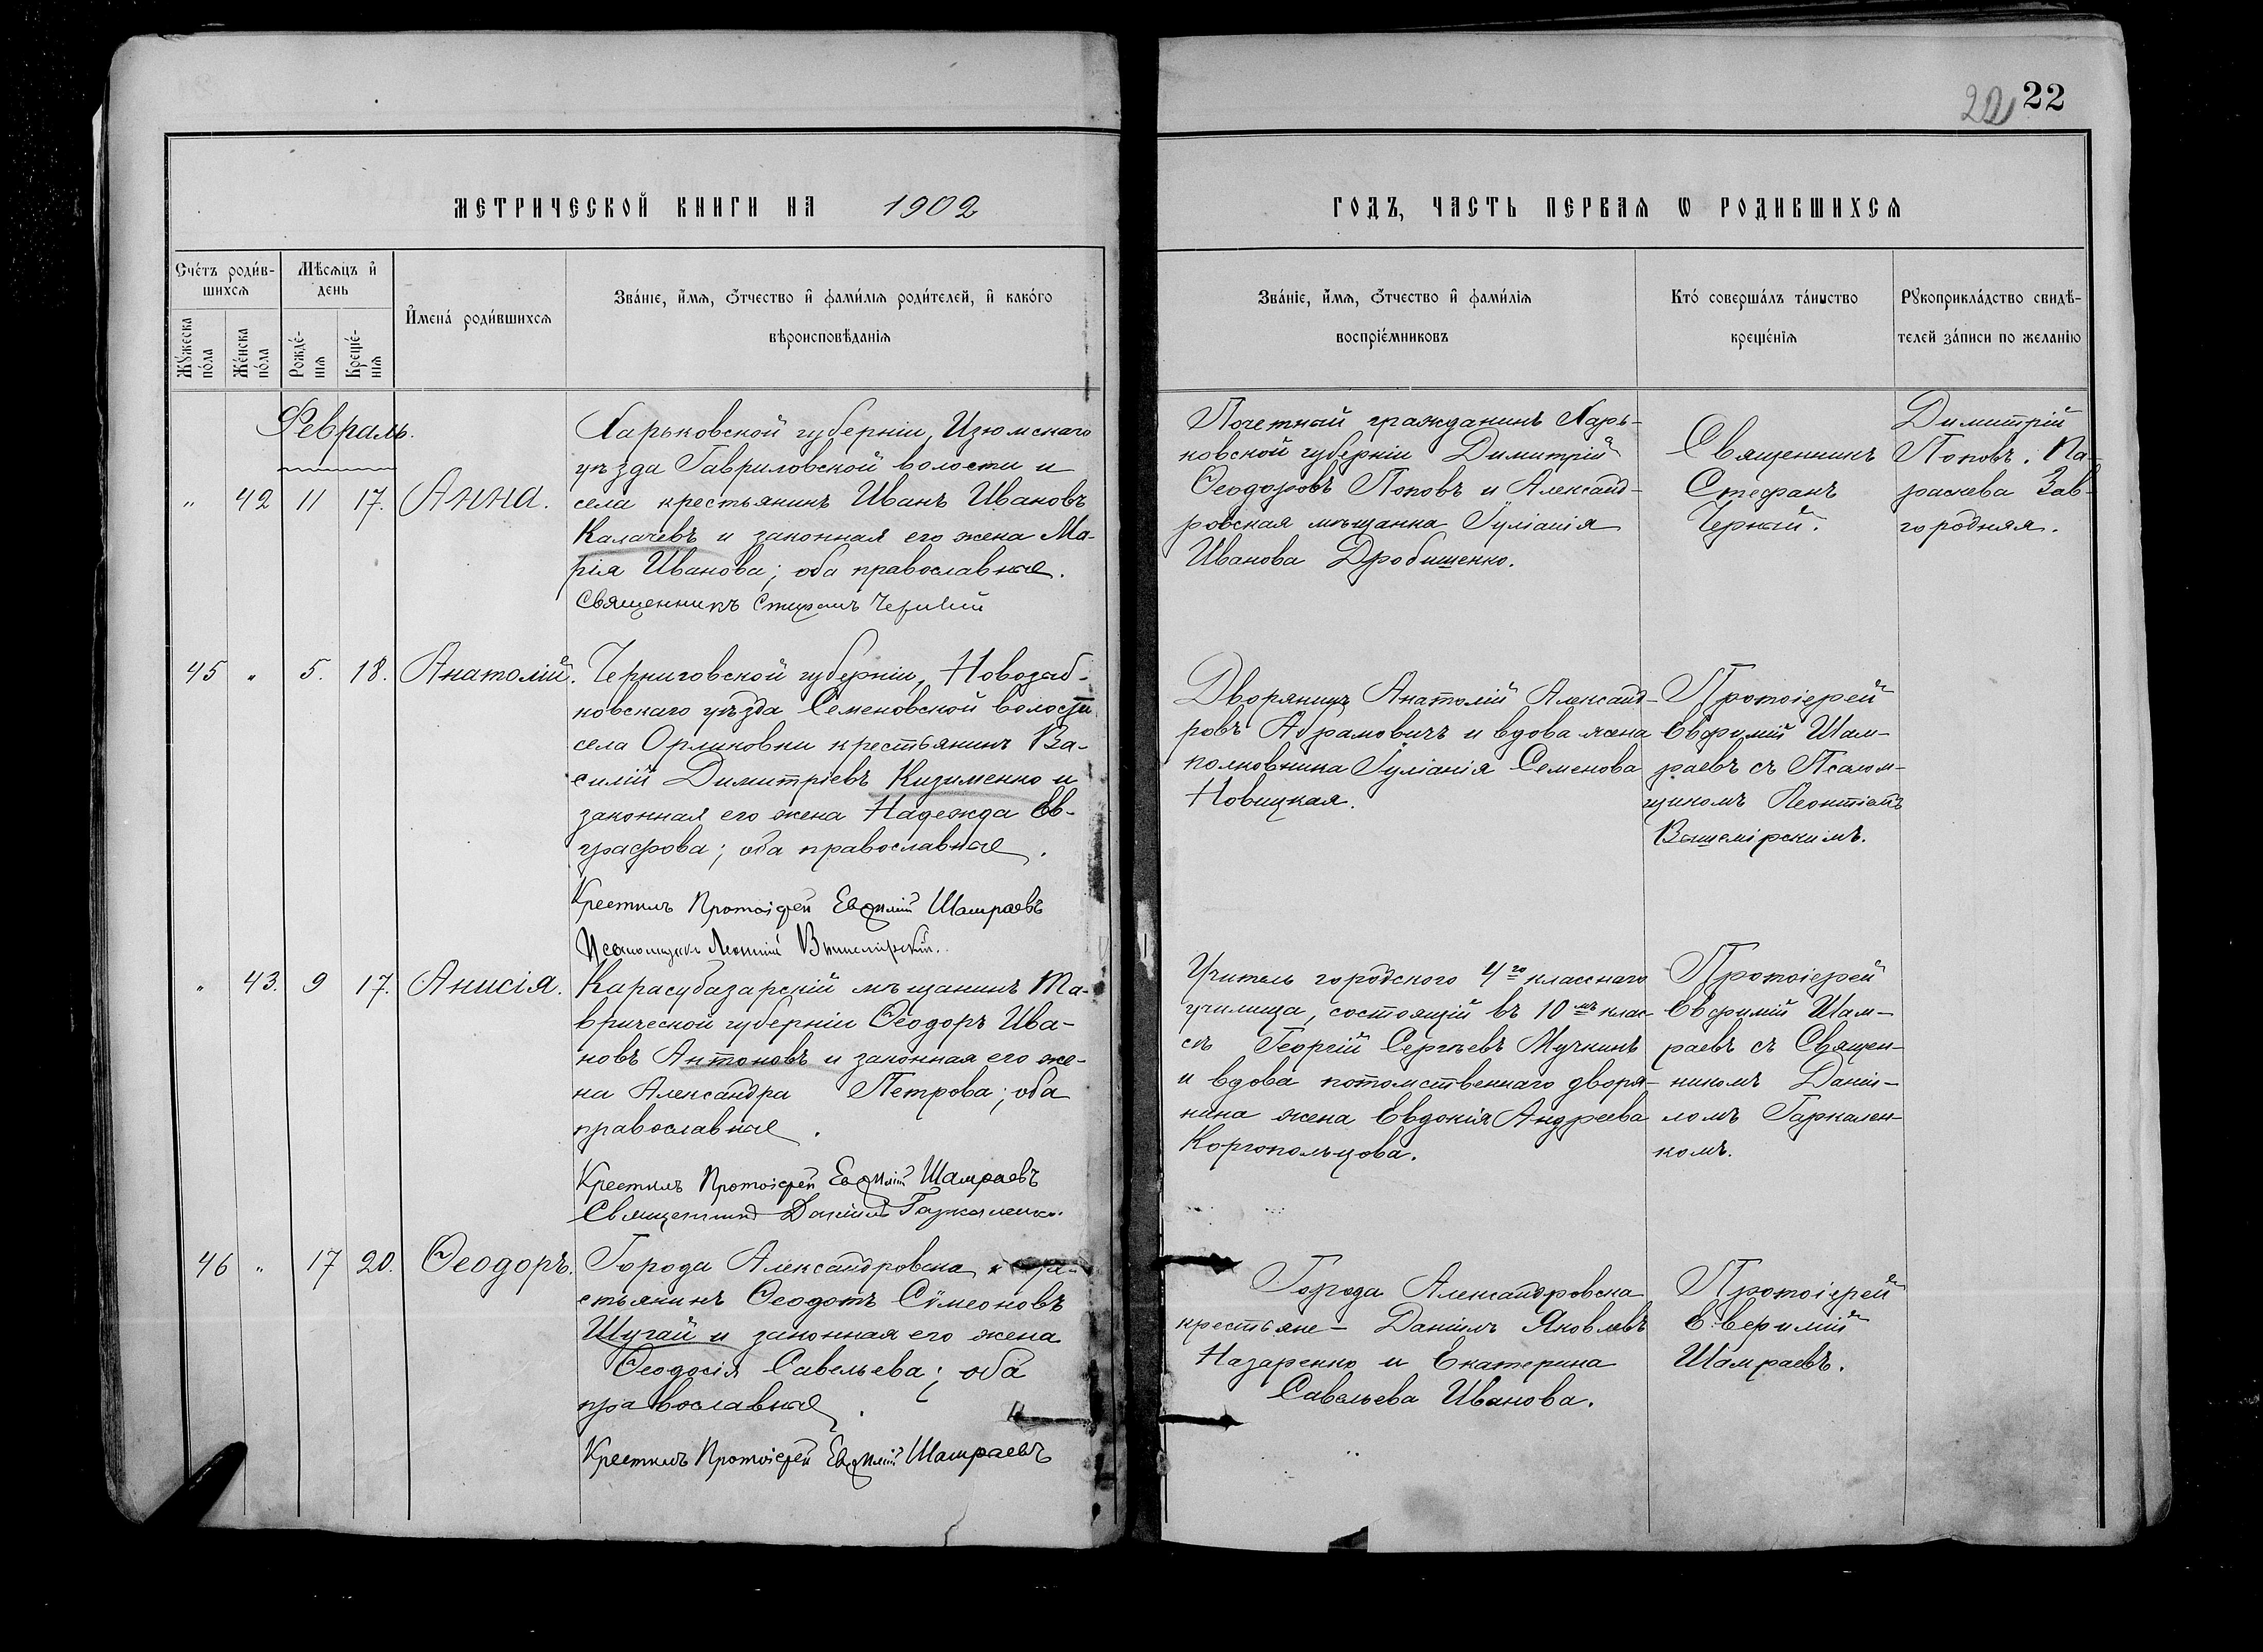 22 22
МЕТРИЧЕСКОЙ КНИГИ НА 1902
ГОДЪ, ЧАСТЬ ПЕРВАЯ Ѡ РОДИВШИХСЯ
Счетъ родив-
шихся
Мѣсяцъ и
день
Мужеска
пола
Женска
пола
Рожде-
нія
Креще-
нія
Имена родившихся
Званіе, имя, отчество и фамилія родителей, и какого
вѣроисповѣданія
Званіе, имя, отчество и фамилія
воспріемниковъ
Кто совершалъ таинство
крещенія
Рукоприкладство свидѣ-
телей записи по желанію
Февраль.
" 42 11 17. Анна.
Харьковской губерніи, Изюмскаго
уѣзда Гавриловской волости и
села крестьянинъ Иванъ Ивановъ
Калачевъ и законная его жена Ма-
рія Иванова; оба православные.
Священникъ Стефанъ Черный
Почетный гражданинъ Харь-
ковской губерніи Димитрій
Ѳеодоровъ Поповъ и Александ-
ровская мѣщанка Іуліанія
Иванова Дробишенко.
Священникъ
Стефанъ
Черный.
Димитрій
Поповъ. Па-
раскева Зав-
городняя.
45 " 5. 18. Анатолій.
Черниговской губерніи, Новозыб-
ковскаго уѣзда Семеновской волости
села Орликовки крестьянинъ Ва-
силій Димитріевъ Кизименко и
законная его жена Надежда Ев-
графова; оба православные.
Крестилъ Протоіерей Евфимій Шамраевъ
Псаломщикъ Леонтій Вышемірскій.
Дворянинъ Анатолій Александ-
ровъ Абрамовичъ и вдова жена
полковника Іуліанія Семенова
Новицкая.
Протоіерей
Евфимій Шам-
раевъ съ Псалом-
щикомъ Леонтіемъ
Вышемірскимъ.
" 43. 9 17. Анисія.
Карасубазарскій мѣщанинъ Та-
врической губерніи Ѳеодоръ Ива-
новъ Антоновъ и законная его же-
на Александра Петрова; оба
православные.
Крестилъ Протоіерей Евфимій Шамраевъ
Священникъ Даніилъ Гаркаленко.
Учитель городского 4го класснаго
училища, состоящій въ 10мъ клас-
сѣ Георгій Сергѣевъ Мучкинъ
и вдова потомственнаго дворя-
нина жена Евдокія Андреева
Коргопольцова.
Протоіерей
Евфимій Шам-
раевъ съ Священ-
никомъ Даніи-
ломъ Гаркален-
комъ.
46 " 17 20. Ѳеодоръ.
Города Александровска кре-
стьянинъ Ѳеодотъ Сѵмеоновъ
Шугай и законная его жена
Ѳеодосія Савельева; оба
православные.
Крестилъ Протоіерей Евфимій Шамраевъ
Города Александровска
крестьяне – Даніилъ Яковлевъ
Назаренко и Екатерина
Савельева Иванова.
Протоіерей
Евфимій
Шамраевъ.